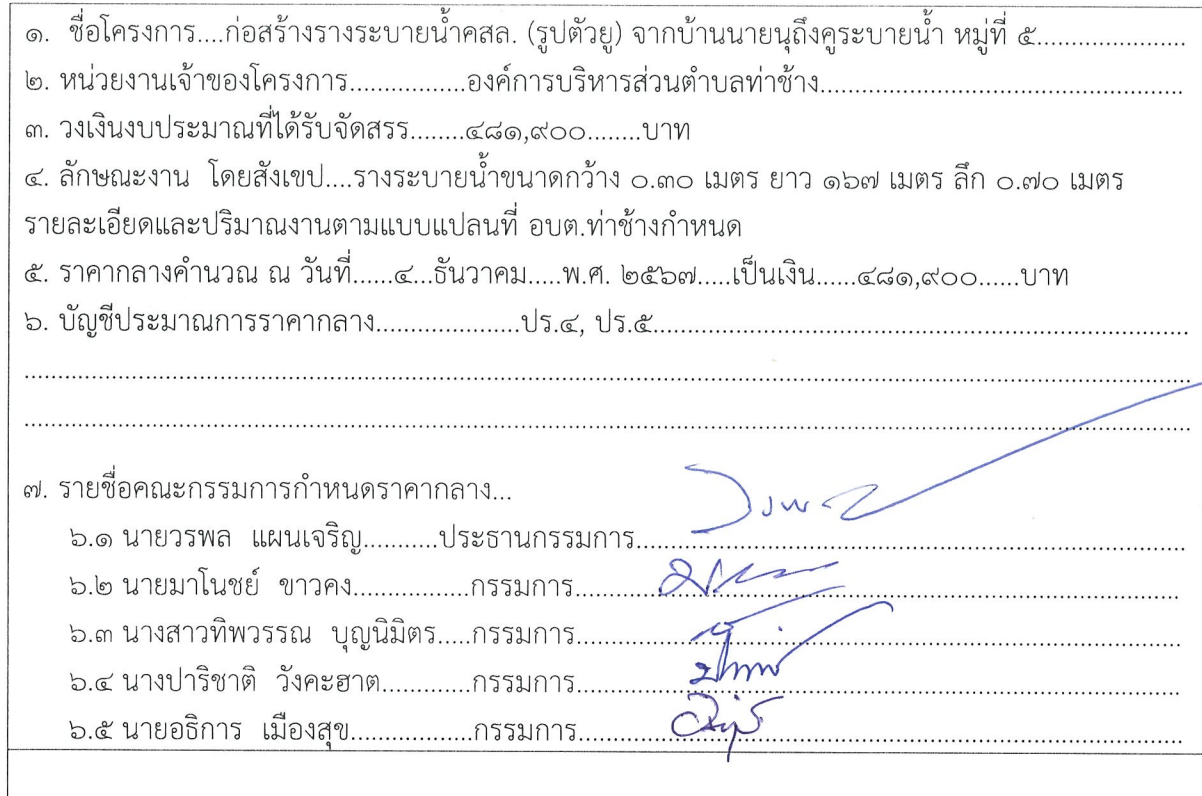 ๑. ชื่อโครงการ....ก่อสร้างรางระบายน้ำคสล. (รูปตัวยู) จากบ้านนายนุถึงคูระบายน้ำ หมู่ที่ ๕......................
๒. หน่วยงานเจ้าของโครงการ.................องค์การบริหารส่วนตำบลท่าช้าง......................................................
๓. วงเงินงบประมาณที่ได้รับจัดสรร........๔๘๑,๙๐๐........บาท
๔. ลักษณะงาน โดยสังเขป....รางระบายน้ำขนาดกว้าง ๐.๓๐ เมตร ยาว ๑๖๗ เมตร ลึก ๐.๗๐ เมตร
รายละเอียดและปริมาณงานตามแบบแปลนที่ อบต.ท่าช้างกำหนด
๕. ราคากลางคำนวณ ณ วันที่......๔...ธันวาคม.....พ.ศ. ๒๕๖๗.....เป็นเงิน......๔๘๑,๙๐๐......บาท
๖. บัญชีประมาณการราคากลาง.....................ปร.๔, ปร.๕................................................................................
๗. รายชื่อคณะกรรมการกำหนดราคากลาง...
๖.๑ นายวรพล แผนเจริญ...........ประธานกรรมการ................................................................................
๖.๒ นายมาโนชย์ ขาวคง..................กรรมการ................................................................................
๖.๓ นางสาวทิพวรรณ บุญนิมิตร.....กรรมการ................................................................................
๖.๔ นางปาริชาติ วังคะฮาต.............กรรมการ................................................................................
๖.๕ นายอธิการ เมืองสุข..................กรรมการ................................................................................